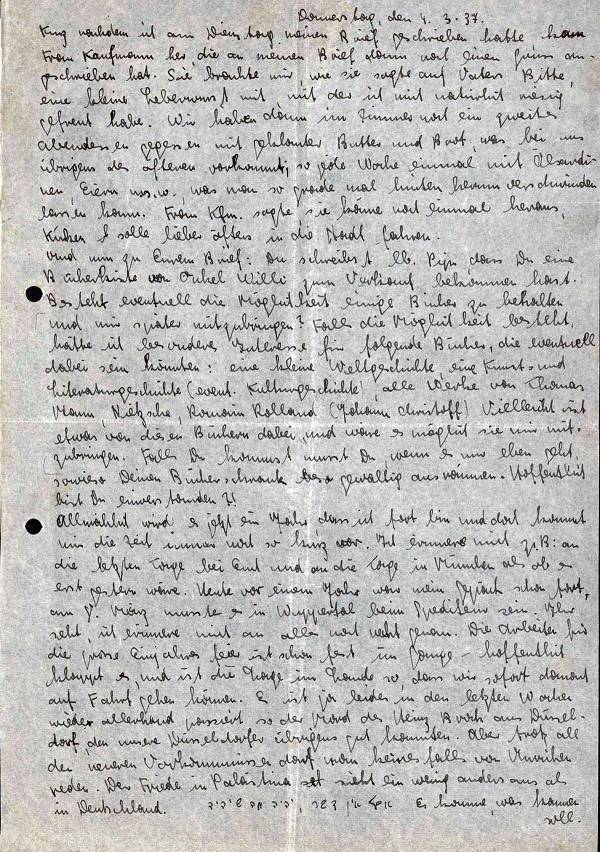 Donnerstag, den 4. 3. 37.
Kurz nachdem ich am Dienstag meinen Brief geschrieben hatte kam
Frau Kaufmann her die an meinen Brief dann noch einen Gruss an-
geschrieben hat. Sie brachte mir, wie sie sagte auf Vaters Bitte,
eine kleine Leberwurst mit, mit der ich mich natürlich riesig
gefreut habe. Wir haben dann im Zimmer noch ein zweites
Abendessen gegessen mit geklauter Butter und Brot, was bei uns
übrigens des öfteren vorkommt, so jede Woche einmal mit Ölsardi-
nen, Eiern u.s.w., was man so grade mal hinten herum verschwinden
lassen kann. Frau Kfm. sagte sie käme noch einmal heraus,
I solle lieber öfters in die Stadt fahren.
Und nun zu Eurem Brief: Du schreibst lb. dass Du eine
Bücherkiste von Onkel Willi zum Verkauf bekommen hast.
Besteht eventuell die Möglichkeit einige Bücher zu behalten
und mir später mitzubringen? Falls die Möglichkeit besteht,
hätte ich besonderes Interesse für folgende Bücher, die eventuell
dabei sein könnten: eine kleine Weltgeschichte, eine Kunst- und
Literaturgeschichte (event. Kulturgeschichte), alle Werke von Thomas
Mann, Nietzsche, Romain Rolland (Johann Christoff) Vielleicht ist
etwas von diesen Büchern dabei, und wäre es möglich sie mir mit-
zubringen. Falls Du kommst musst Du wenn es nur eben geht,
sowieso Deinen Bücherschrank gewaltig ausräumen. Hoffentlich
bist Du einverstanden?!
Allmählich wird es jetzt ein Jahr dass ich fort bin und doch kommt
mir die Zeit immer noch so kurz vor. Ich erinnere mich z.B. an
die letzten Tage bei Euch und an die Tage in München als ob es
erst gestern wäre. Heute vor einem Jahr war mein Gepäck schon fort,
am März musste es in Wuppertal beim Spediteur sein. Ihr
seht, ich erinnere mich an alles noch recht genau. Die Arbeiten für
die grosse Einjahresfeier ist schon fest im Gange - hoffentlich
klappt es und ist die Lage im Lande so, dass wir sofort danach
auf Fahrt gehen können. Es ist ja leider in den letzten Wochen
wieder allerhand passiert so der Mord des Heinz aus Düssel-
dorf, den unsere Düsseldorfer übrigens gut kannten. Aber trotz all
der neueren Vorkommnisse darf man keinesfalls von Unruhen
reden. Der Friede in Palästina sieht ein wenig anders aus als
in Deutschland. Es komme, was kommen
soll.